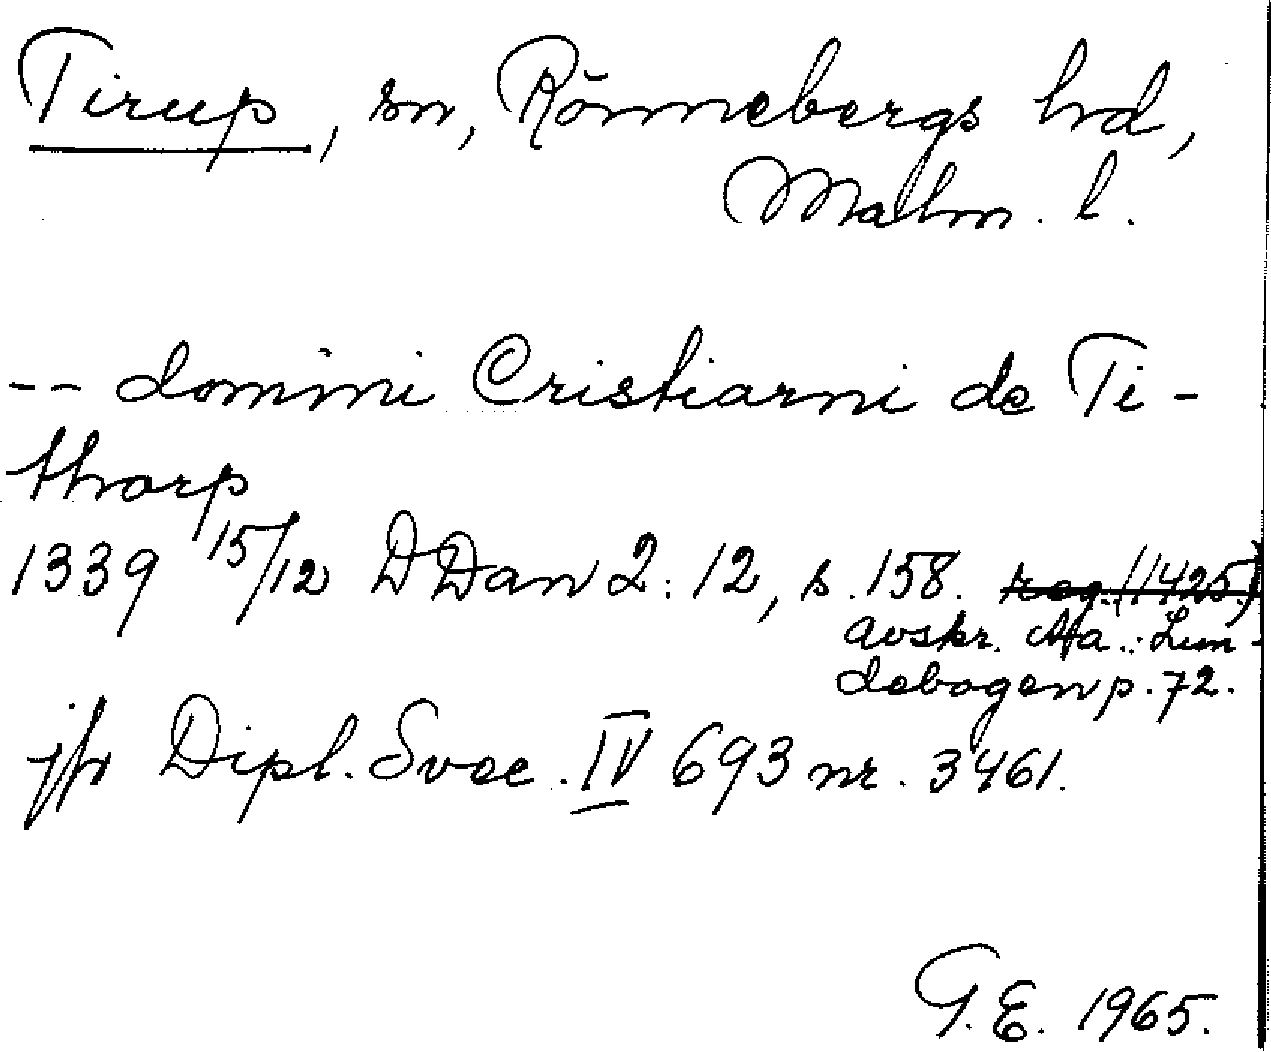 Tirup, sn, Rönnebergs hd,
Malm. l.
-- domini Cristiarni de Ti-
thorp
1339 15/12 DDan 2:12, s. 158. reg. (1425)
avskr. AMa.: Lun-
debogen p. 72.
jfr Dipl. Svec. IV 693 nr. 3461.
G.E. 1965.